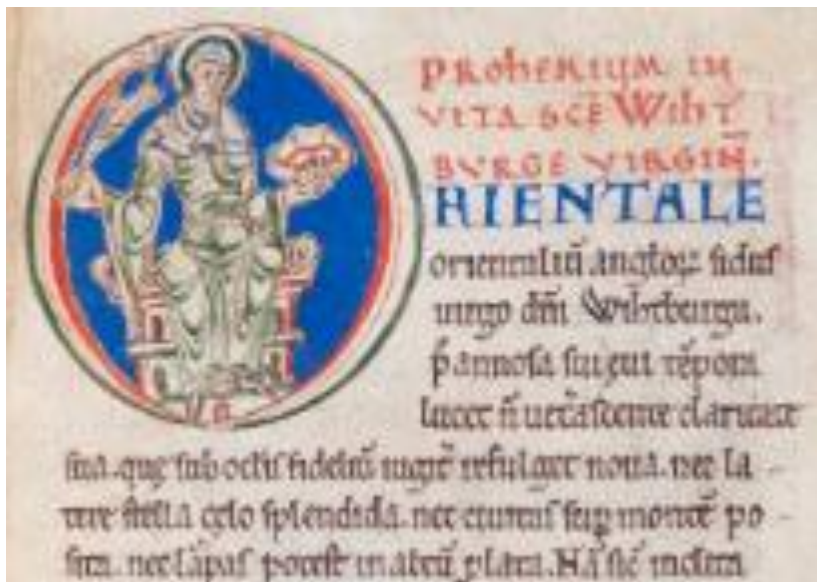 PROHEMIUM IN
VITA SCĒ WIHT
BURGE VIRGIN̄.
HIENTALE
orientaliū angloꝝ sidus
uirgo dn̄i Wihtburga.
p̄ annosa seculi tēpora
lucet n̄ ueterascente claritate
sua. quę sub oculis fideliū iugit̄ refulget noua. nec la
tere stella cęlo splendida. nec ciuitas sup̄ montē po
sita. nec lāpas potest in altū plata. Nā sic̄ inclita